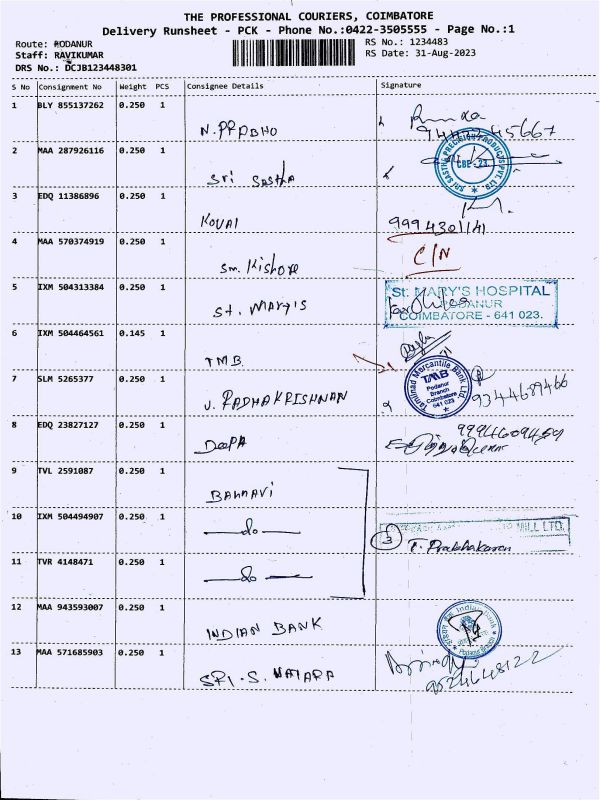 THE PROFESSIONAL COURIERS, COIMBATORE
Delivery Runsheet - PCK - Phone No.:0422-3505555 - Page No.:1
Route: PODANUR
Staff: RAVIKUMAR
DRS No.: DCJB123448301
RS No.: 1234483
RS Date: 31-Aug-2023
S No Consignment No Weight PCS Consignee Details Signature
1 BLY 855137262 0.250 1 N. PRABHO
2 MAA 287926116 0.250 1 Sri Sastha
SRI SASTHA PRECISION PRODUCTS PVT. LTD.
CBE - 23.
3 EDQ 11386896 0.250 1 KOVAI 9994301141
4 MAA 570374919 0.250 1 Sm. Kishore C/N
5 IXM 504313384 0.250 1 St. Marys
St. MARY'S HOSPITAL
PODANUR
COIMBATORE - 641 023.
6 IXM 504464561 0.145 1 TMB
7 SLM 5265377 0.250 1 V. RADHAKRISHNAN 9344689466
Tamilnad Mercantile Bank Ltd.
TMB
Podanur
Branch
Coimbatore
641 023
8 EDQ 23827127 0.250 1 DEEPA
9 TVL 2591087 0.250 1
10 IXM 504494907 0.250 1 —do—
MILL LTD.
3 T. Prabhakaran
11 TVR 4148471 0.250 1 —do—
12 MAA 943593007 0.250 1 INDIAN BANK
Indian Bank
13 MAA 571685903 0.250 1 SRI. S. NATARA